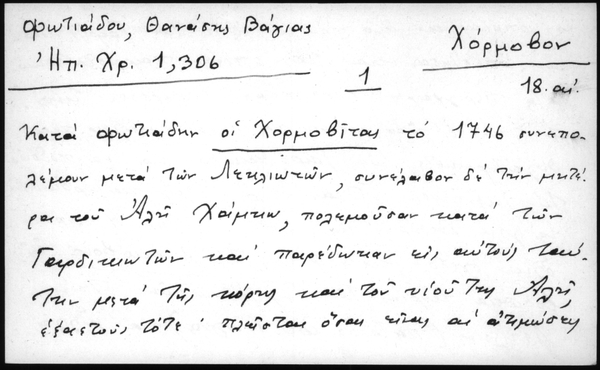 Φωτιάδου, Θανάσης Βάγιας
Ἠπ. Χρ. 1,306
Χόρμοβον
1
18. αἰ.
Κατά Φωτιάδην οἱ Χορμοβῖται τό 1746 συνεπο-
λέμουν μετά τῶν Λεκλιωτῶν, συνέλαβον δέ τήν μητέ-
ρα τοῦ Ἀλῆ Χάμκω, πολεμοῦσαν κατά τῶν
Γαρδικιωτῶν καί παρέδωκαν εἰς αὐτούς ταύ-
την μετά τῆς κόρης καί τοῦ υἱοῦ της Ἀλῆ,
ἑξαετοῦς τότε. πλεῖσται ὅσαι εἶναι αἱ ἀτιμώσεις